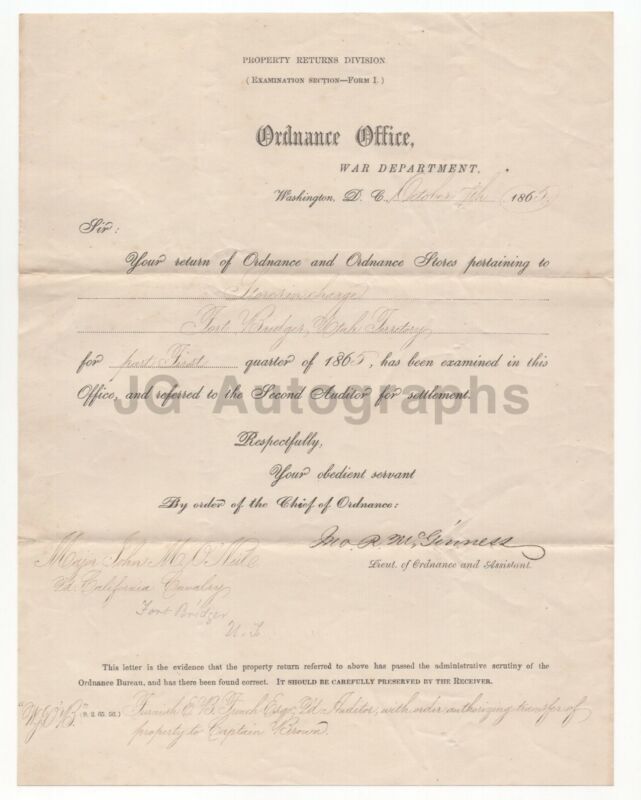 PROPERTY RETURNS DIVISION
(EXAMINATION SECTION—FORM I.)
Ordnance Office,
WAR DEPARTMENT,
Washington, D. C. October 7th 1865
Sir:
Your return of Ordnance and Ordnance Stores pertaining to
Stores in charge
Fort Bridger, Utah Territory
for part First quarter of 1865, has been examined in this
Office, and referred to the Second Auditor for settlement.
JG Autographs
Respectfully,
Your obedient servant
By order of the Chief of Ordnance:
Jno. R. McGinness
Lieut. of Ordnance and Assistant.
Major John M. O'Neil
2d California Cavalry
Fort Bridger
U. T.
This letter is the evidence that the property return referred to above has passed the administrative scrutiny of the
Ordnance Bureau, and has there been found correct. IT SHOULD BE CAREFULLY PRESERVED BY THE RECEIVER.
(9. 2. 65. 5d.) Furnish E. B. French Esqr 2d Auditor, with order authorizing transfer of
property to Captain Brown.